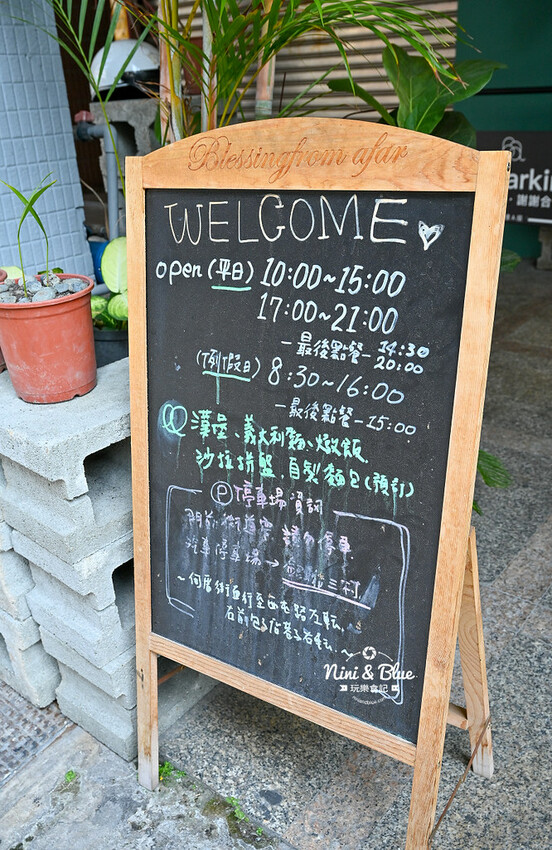 Blessing from afar
WELCOME
open (平日) 10:00~15:00
17:00~21:00
—最後點餐— 14:30
20:00
(例假日) 8:30~16:00
—最後點餐—15:00
漢堡、義大利麵、燉飯
沙拉拼盤、自製麵包(預訂)
P 停車場資訊
門前街道窄,請勿停車
汽車停車場→
右前包子店巷子右転
arkin
謝謝合
Nini & Blue
玩樂食記